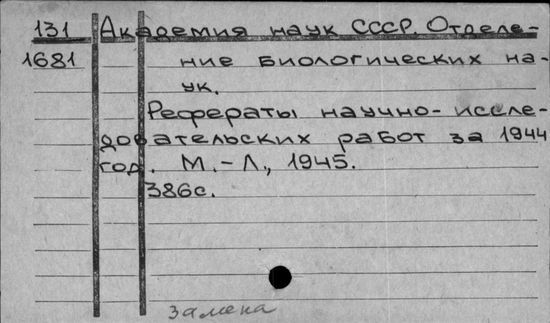 131 Академия наук СССР. Отделе-
1681 ние биологических на-
ук.
Рефераты научно-иссле-
довательских работ за 1944
год. М.-Л., 1945.
386с.
замена